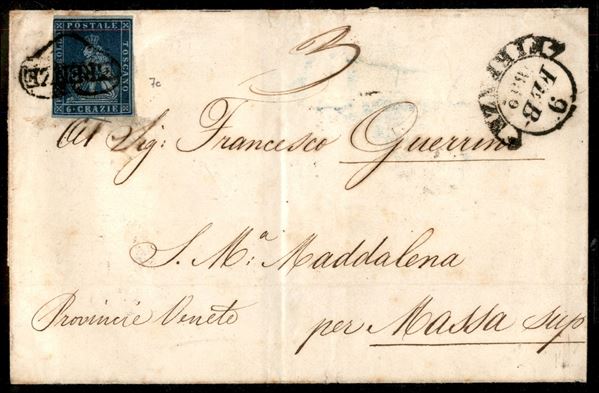 FRANCO BOLLO
POSTALE
TOSCANO
6·CRAZIE
FIRENZE
7c
3
FIRENZE
9
FEB
Al Sig: Francesco Guerrini
S. M.ª Maddalena
Provincie Venete
per Massa sup